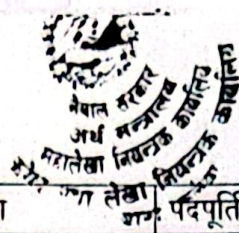 नेपाल सरकार
अर्थ मन्त्रालय
महालेखा नियन्त्रक कार्यालय
लेखा नियन्त्रक कार्यालय
पदपूर्ति